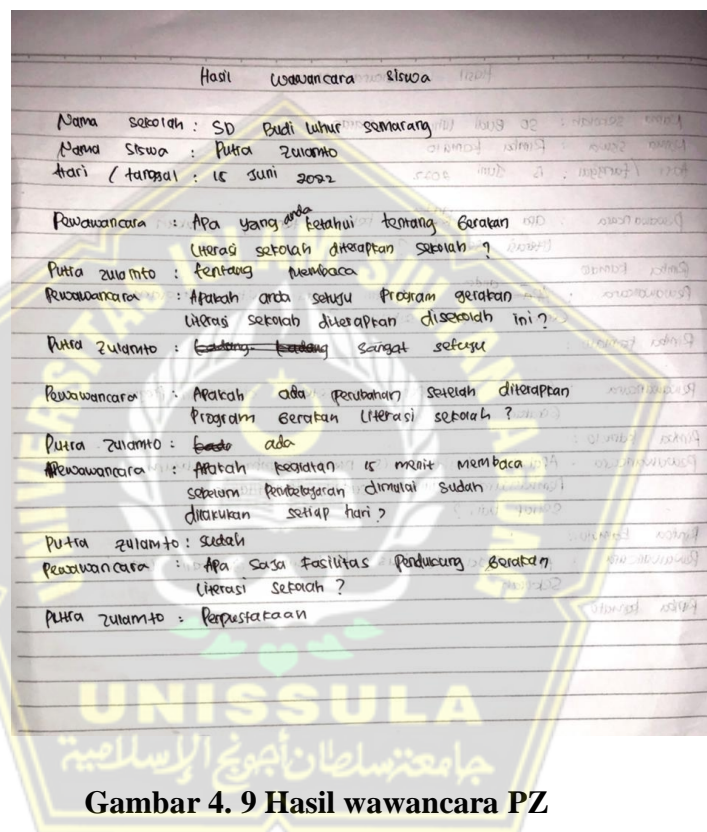 Hasil Wawancara Siswa
Nama sekolah : SD Budi Luhur Semarang
Nama Siswa : Putra Zulamto
Hari / tanggal : 15 Juni 2022
Pewawancara : Apa yang anda ketahui tentang Gerakan
Literasi sekolah diterapkan sekolah ?
Putra Zulamto : tentang Membaca
Pewawancara : Apakah anda setuju Program gerakan
Literasi sekolah diterapkan disekolah ini ?
Putra Zulamto : kadang-kadang sangat setuju
Pewawancara : Apakah ada perubahan setelah diterapkan
Program Gerakan Literasi sekolah ?
Putra Zulamto : ada
Pewawancara : Apakah kegiatan 15 menit membaca
sebelum Pembelajaran dimulai sudah
dilakukan setiap hari ?
Putra Zulamto : sudah
Pewawancara : Apa saja Fasilitas Pendukung Gerakan
Literasi sekolah ?
Putra Zulamto : Perpustakaan
UNISSULA
جامعتنسلطان أجونج الإسلامية
Gambar 4. 9 Hasil wawancara PZ